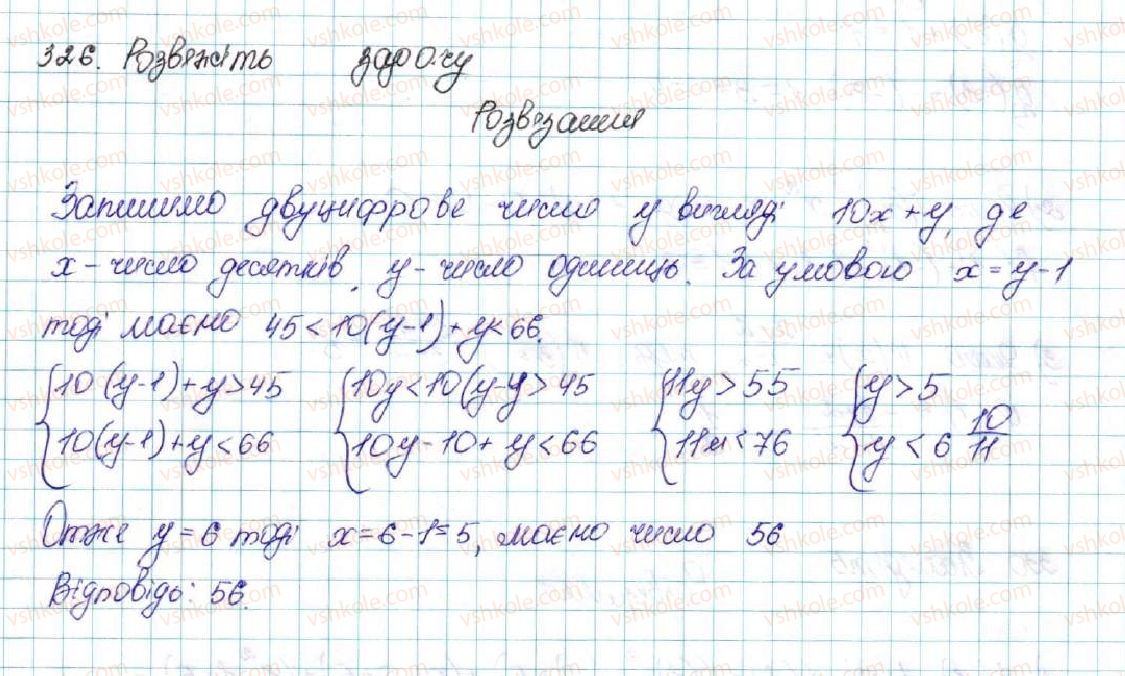 326. Розв'яжіть задачу
Розв'язання
Запишимо двуцифрове число у вигляді 10x+y, де
x - число десятків, y - число одиниць. За умовою x=y-1
тоді маємо 45<10(y-1)+y<66.
{10(y-1)+y>45 {10y<10(y-y>45 {11y>55 {y>5
{10(y-1)+y<66 {10y-10+y<66 {11y<76 {y<6 10/11
Отже y=6 тоді x=6-1=5, маємо число 56
Відповідь: 56.